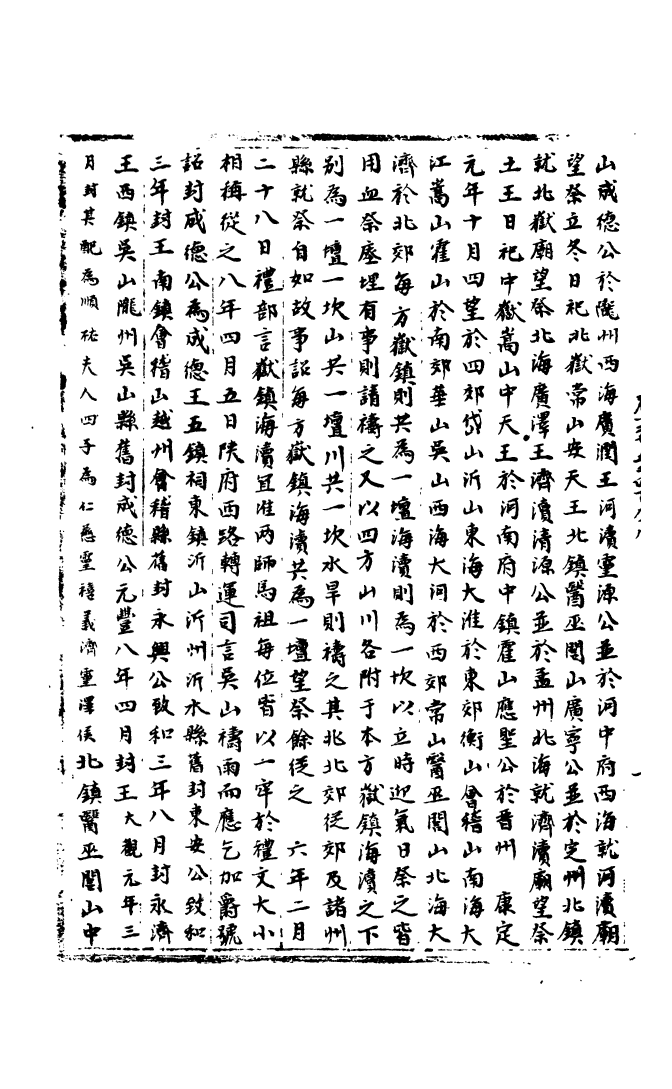 山成德公於隴州西海廣潤王河瀆靈源公並於河中府西海就河瀆廟
望祭立冬日祀北嶽常山安天王北鎮醫巫閭山廣寧公並於定州北鎮
就北嶽廟望祭北海廣澤王濟瀆清源公並於孟州北海就濟瀆廟望祭
土王日祀中嶽嵩山中天王於河南府中鎮霍山應聖公於晋州　康定
元年十月四望於四郊岱山沂山東海大淮於東郊衡山會稽山南海大
江嵩山霍山於南郊華山吳山西海大河於西郊常山醫巫閭山北海大
濟於北郊每方嶽鎮則共為一壇海瀆則為一坎以立時迎氣日祭之皆
用血祭瘞埋有事則請禱之又以四方山川各附于本方嶽鎮海瀆之下
别為一壇一坎山共一壇川共一坎水旱則禱之其北北郊從郊及諸州
縣就祭自如故事詔每方嶽鎮海瀆共為一壇望祭餘從之　六年二月
二十八日禮部言嶽鎮海瀆宜准兩師馬祖每位皆以一牢於禮文大小
相稱從之八年四月五日陝府西路轉運司言吳山禱雨而應乞加爵號
詔封成德公為成德王五鎮祠東鎮沂山沂州沂水縣舊封東安公政和
三年封王南鎮會稽山越州會稽縣舊封永興公政和三年八月封永濟
王西鎮吳山隴州吳山縣舊封成德公元豐八年四月封王大觀元年三
月封其配為順祐夫人四子為仁慈靈禧義濟重澤侯北鎮醫巫閭山中